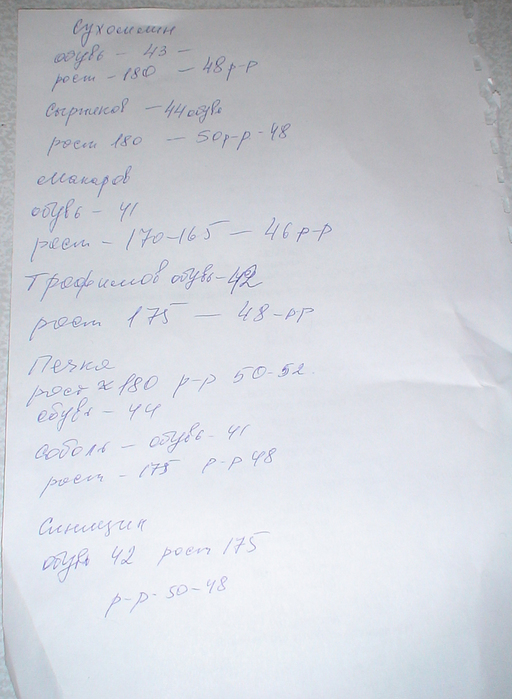 Сухомлин
обувь - 43 -
рост - 180 - 48 р-р
Сырников - 44 обувь
рост 180 - 50 р-р - 48
Макаров
обувь - 41
рост - 170-165 - 46 р-р
Трофимов обувь - 42
рост 175 - 48-рр
Печка
рост 180 р-р 50-52.
обувь - 44
Соболь - обувь - 41
рост - 175 р-р 48
Синицин
обувь 42 рост 175
р-р - 50-48